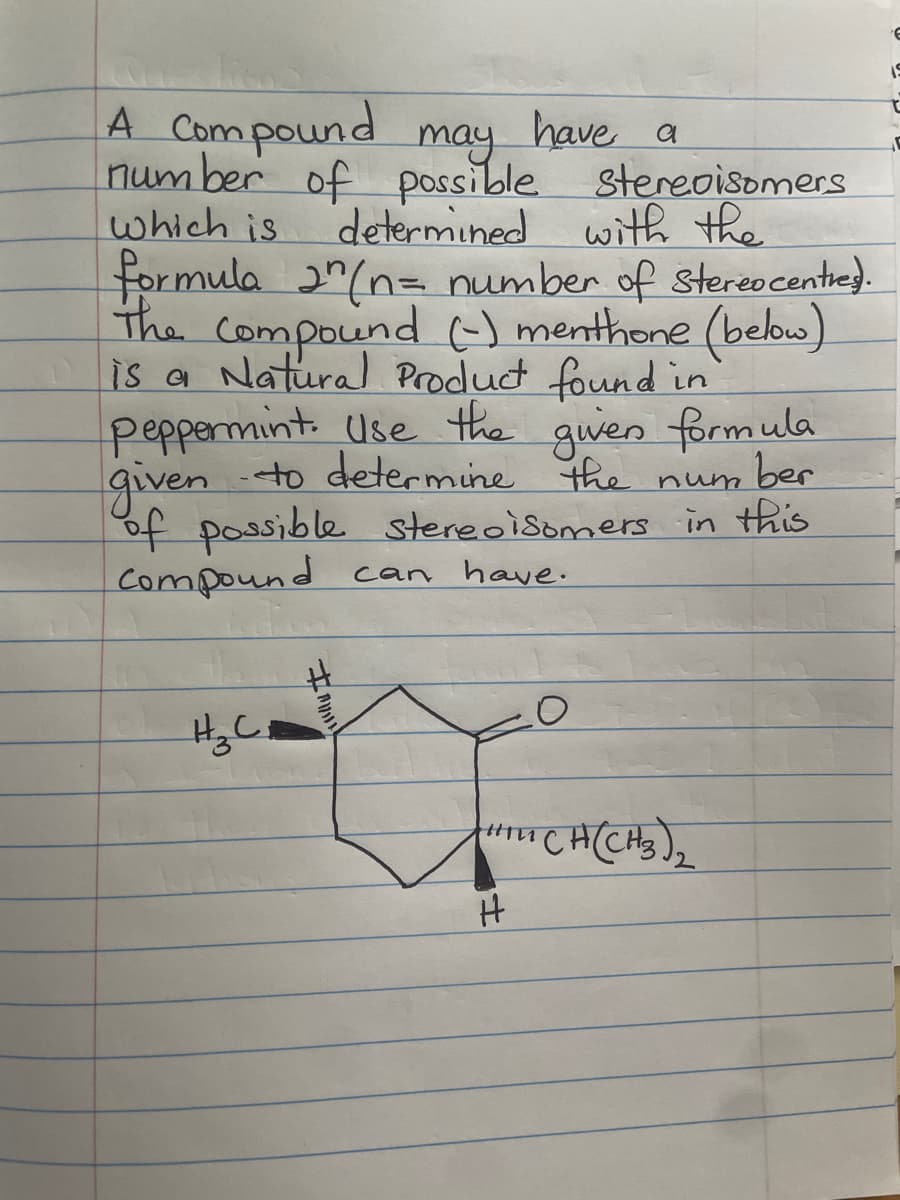 A Compound may have a
number of possible stereoisomers
which is determined with the
formula 2ⁿ(n= number of stereocentres).
The compound (-) menthone (below)
is a Natural Product found in
peppermint. Use the given formula
given - to determine the number
of possible stereoisomers in this
compound can have.
H
H₃C
O
CH(CH₃)₂
H